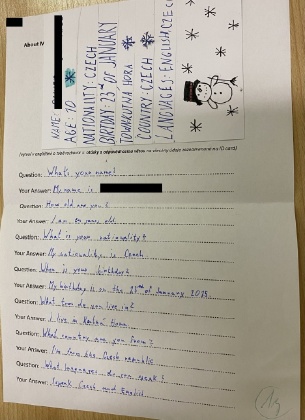 About M
NAME:
AGE: 10
NATIONALITY: CZECH
BIRTHDAY: 23rd OF JANUARY
TOWN: KUTNÁ HORA
COUNTRY: CZECH
LANGUAGES: ENGLISH, CZECH
Question: What's your name?
Your Answer: My name is
Question: How old are you?
Your Answer: I am years old.
Question: What is your nationality?
Your Answer: My nationality is Czech
Question: When is your birthday?
Your Answer: My birthday is on the of January
Question: What town do you live in?
Your Answer: I live in Kutná Hora
Question: What country are you from?
Your Answer: I'm from the Czech republic
Question: What languages do you speak?
Your Answer: I speak Czech and English